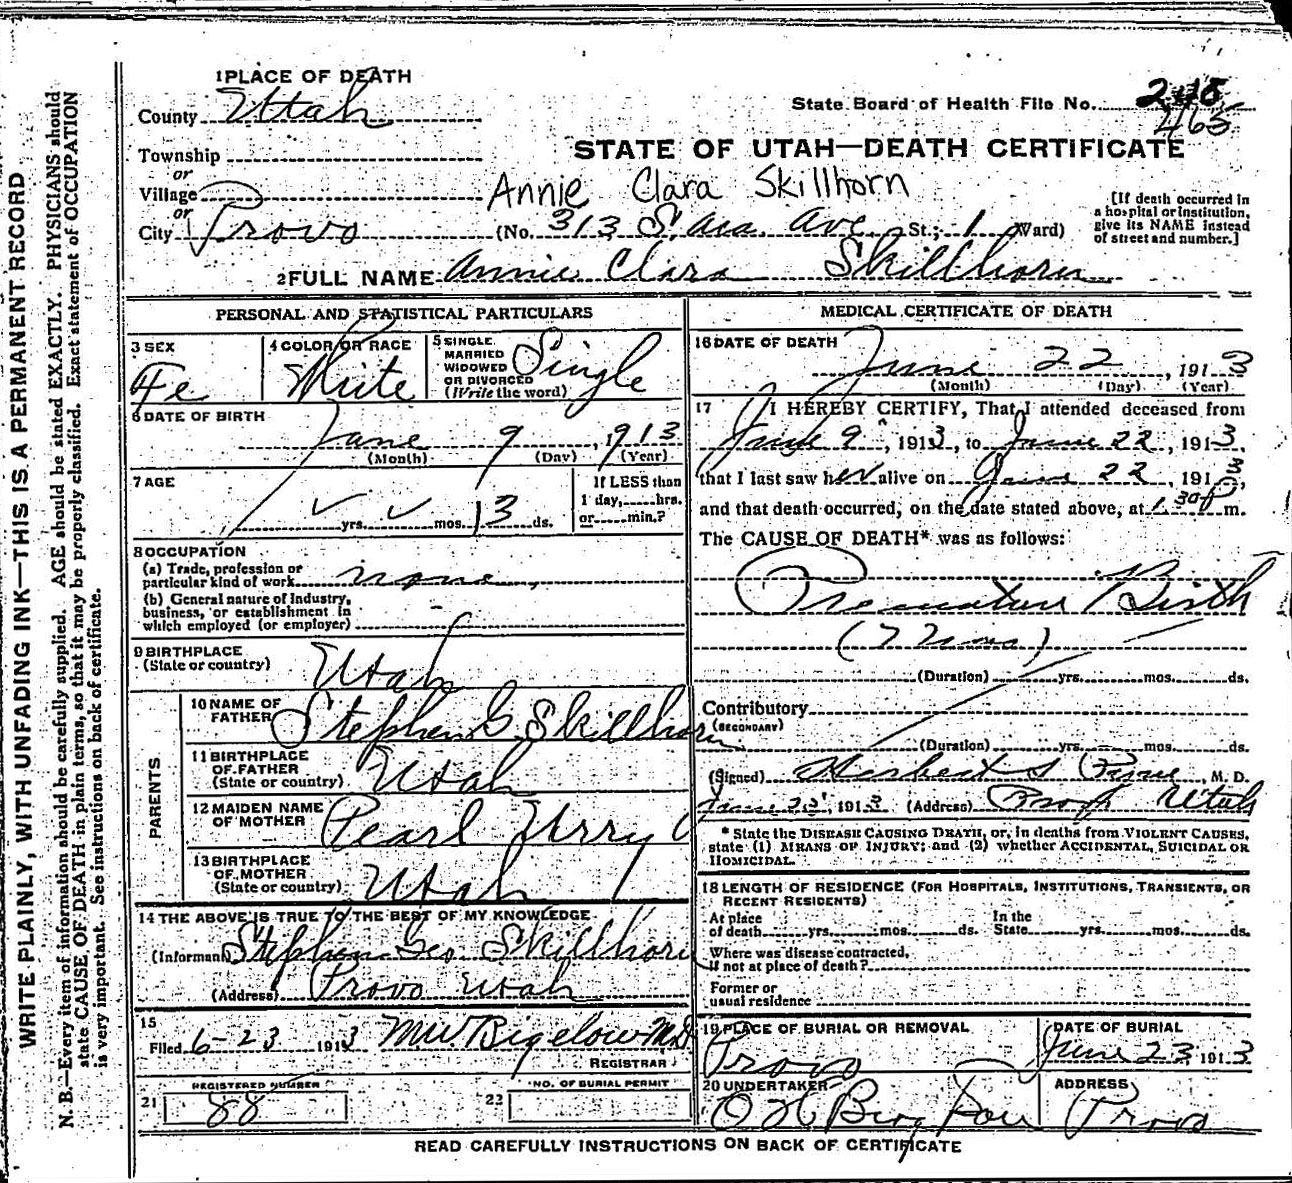 1 PLACE OF DEATH
County Utah
State Board of Health File No. 248
465
Township
or
STATE OF UTAH—DEATH CERTIFICATE
Village
or
Annie Clara Skillhorn
City Provo (No. 313 S. Aca. Ave. St.; 1 Ward)
[If death occurred in a hospital or institution, give its NAME instead of street and number.]
2 FULL NAME Annie Clara Skillhorn
PERSONAL AND STATISTICAL PARTICULARS
3 SEX Fe
4 COLOR OR RACE White
5 SINGLE MARRIED WIDOWED OR DIVORCED (Write the word) Single
6 DATE OF BIRTH
June 9, 1913
(Month) (Day) (Year)
7 AGE
yrs. mos. 13 ds.
If LESS than 1 day, hrs. or min.?
8 OCCUPATION
(a) Trade, profession or particular kind of work none
(b) General nature of industry, business, or establishment in which employed (or employer)
9 BIRTHPLACE
(State or country) Utah
PARENTS
10 NAME OF FATHER Stephen G. Skillhorn
11 BIRTHPLACE OF FATHER (State or country) Utah
12 MAIDEN NAME OF MOTHER Pearl Urry
13 BIRTHPLACE OF MOTHER (State or country) Utah
14 THE ABOVE IS TRUE TO THE BEST OF MY KNOWLEDGE
(Informant) Stephen Geo Skillhorn
(Address) Provo Utah
15
Filed 6-23 1913 MW Bigelow MD
REGISTRAR
REGISTERED NUMBER
21 88
NO. OF BURIAL PERMIT
22
MEDICAL CERTIFICATE OF DEATH
16 DATE OF DEATH
June 22, 1913
(Month) (Day) (Year)
17 I HEREBY CERTIFY, That I attended deceased from
June 9, 1913, to June 22, 1913,
that I last saw her alive on June 22, 1913,
and that death occurred, on the date stated above, at 1.30 P m.
The CAUSE OF DEATH* was as follows:
Premature Birth
(7 mos)
(Duration) yrs. mos. ds.
Contributory
(SECONDARY)
(Duration) yrs. mos. ds.
(Signed) Herbert S Pyne, M. D.
June 23, 1913 (Address) Provo Utah
* State the DISEASE CAUSING DEATH, or, in deaths from VIOLENT CAUSES,
state (1) MEANS OF INJURY; and (2) whether ACCIDENTAL, SUICIDAL OR
HOMICIDAL.
18 LENGTH OF RESIDENCE (FOR HOSPITALS, INSTITUTIONS, TRANSIENTS, OR
RECENT RESIDENTS)
At place of death yrs. mos. ds. In the State yrs. mos. ds.
Where was disease contracted,
if not at place of death?
Former or
usual residence
19 PLACE OF BURIAL OR REMOVAL
Provo
DATE OF BURIAL
June 23 1913
20 UNDERTAKER
ADDRESS
Provo
READ CAREFULLY INSTRUCTIONS ON BACK OF CERTIFICATE
WRITE PLAINLY, WITH UNFADING INK—THIS IS A PERMANENT RECORD
N. B.—Every item of information should be carefully supplied. AGE should be stated EXACTLY. PHYSICIANS should
state CAUSE OF DEATH in plain terms, so that it may be properly classified. Exact statement of OCCUPATION
is very important. See instructions on back of certificate.